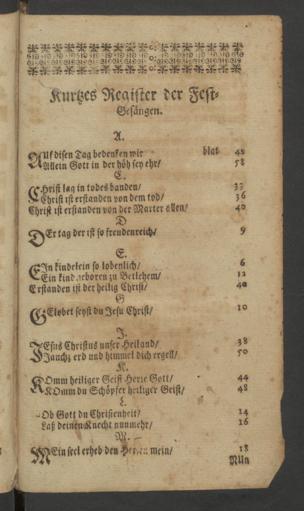 Kurtzes Register der Fest-
Gesängen.
A.
AUf disen Tag bedenken wir blat 42
Allein Gott in der höh sey ehr/ 58
C.
CHrist lag in todes banden/ 33
Christ ist erstanden von dem tod/ 36
Christ ist erstanden von der Marter allen/ 40
D
DEr tag der ist so freudenreich/ 9
E.
EIn kindelein so lobenlich/ 6
Ein kind geboren zu Betlehem/ 12
Erstanden ist der heilig Christ/ 40
G
GElobet seyst du Jesu Christ/ 10
J.
JEsus Christus unser Heiland/ 38
Jauchz erd und himmel dich ergell/ 50
K.
KOmm heiliger Geist Herre Gott/ 44
KOmm du Schöpfer heiliger Geist/ 48
L.
Lob Gott du Christenheit/ 14
Laß deinen Knecht nunmehr/ 16
M.
MEin seel erheb den Herren mein/ 18
Nun